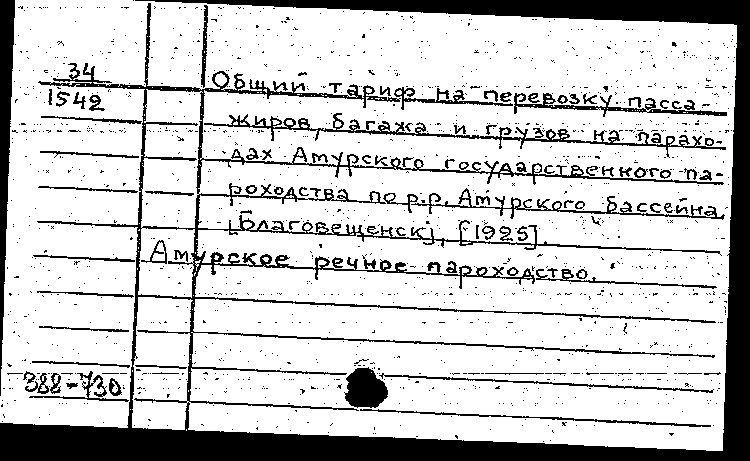 34
1542
Общий тариф на перевозку пасса-
жиров, багажа и грузов на парахо-
дах Амурского государственного па-
роходства по р.р. Амурского бассейна.
[Благовещенск], [1925].
Амурское речное пароходство.
388-730